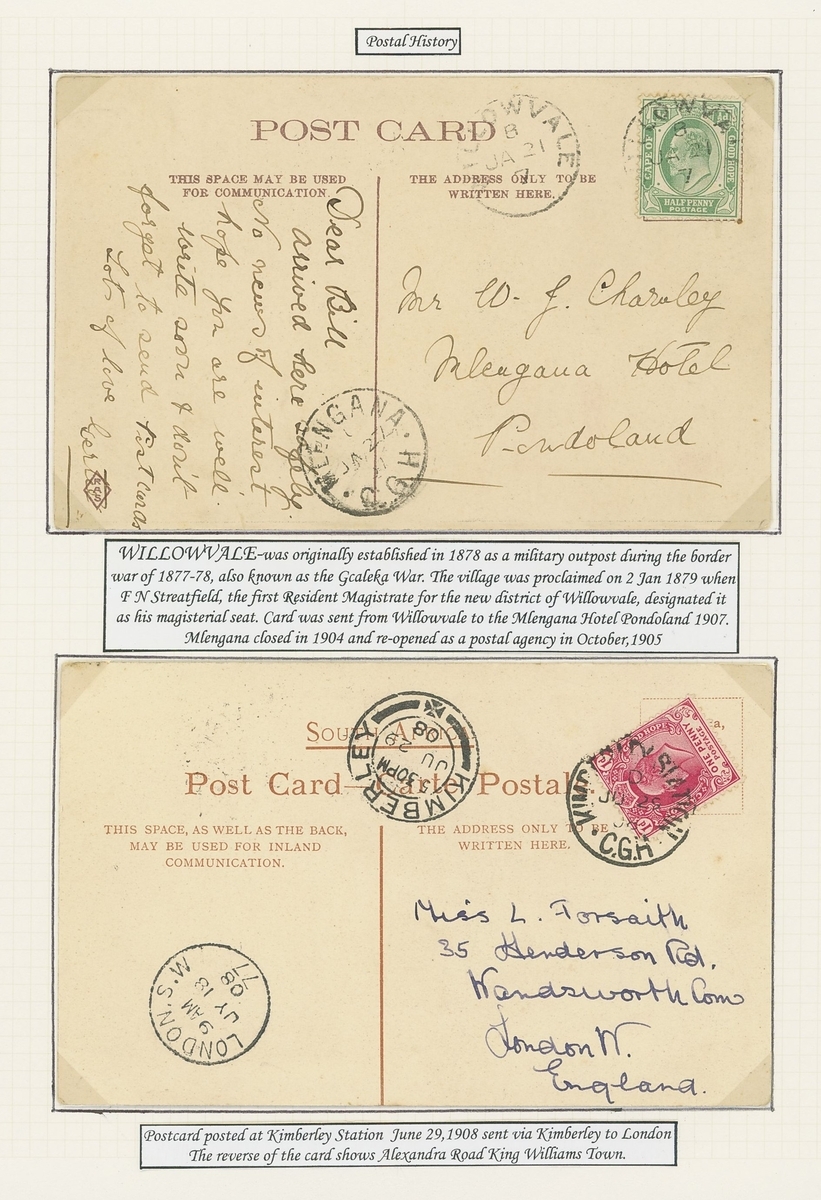 Postal History
POST CARD
THIS SPACE MAY BE USED
FOR COMMUNICATION.
THE ADDRESS ONLY TO BE
WRITTEN HERE.
WILLOWVALE
B
JA 21
7
CAPE OF GOOD HOPE
HALF PENNY
POSTAGE
Dear Bill
arrived here safely.
No news of interest
hope you are well.
write soon & don't
forget to send postcards
Lots of love Gert
Mr W. J. Charnley
Mlengana Hotel
Pondoland
MLENGANA
JA 27
WILLOWVALE-was originally established in 1878 as a military outpost during the border
war of 1877-78, also known as the Gcaleka War. The village was proclaimed on 2 Jan 1879 when
F N Streatfield, the first Resident Magistrate for the new district of Willowvale, designated it
as his magisterial seat. Card was sent from Willowvale to the Mlengana Hotel Pondoland 1907.
Mlengana closed in 1904 and re-opened as a postal agency in October,1905
South Africa
Post Card—Carte Postale
THIS SPACE, AS WELL AS THE BACK,
MAY BE USED FOR INLAND
COMMUNICATION.
THE ADDRESS ONLY TO BE
WRITTEN HERE.
KIMBERLEY
5.30PM
JU 29
08
ONE PENNY
POSTAGE
C.G.H
Miss L. Forsaith
35 Henderson Rd.
Wandsworth Com
London W.
England.
LONDON.S.W
9 AM
JY 18
08
77
Postcard posted at Kimberley Station June 29,1908 sent via Kimberley to London
The reverse of the card shows Alexandra Road King Williams Town.